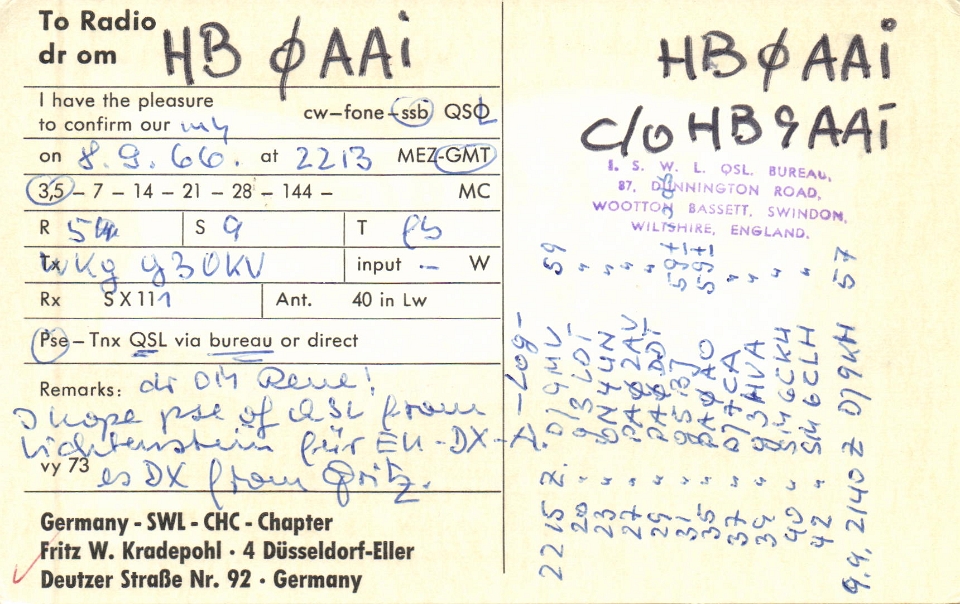 To Radio
dr om HB ØAAi
I have the pleasure
to confirm our my cw–fone–ssb QSL
on 8.9.66. at 2213 MEZ-GMT
3,5 – 7 – 14 – 21 – 28 – 144 – MC
R 5 S 9 T fb
Tx wkg g3OKV input – W
Rx SX111 Ant. 40 in Lw
Pse – Tnx QSL via bureau or direct
Remarks: dr OM Rene!
I hope pse of QSL from
Lichtenstein für EU-DX-A.
vy 73 es DX from Fritz.
Germany - SWL - CHC - Chapter
Fritz W. Kradepohl · 4 Düsseldorf-Eller
Deutzer Straße Nr. 92 · Germany
HBØAAi
c/o HB9AAi
I. S. W. L. QSL. BUREAU,
87, DUNNINGTON ROAD,
WOOTTON BASSETT, SWINDON,
WILTSHIRE, ENGLAND.
-Log-
22 15 Z. DJ9MV 59
20 " g3LDI "
23 " ON4UN "
27 " PAØ2AV "
29 " PAØDDT
31 " 59+
35 " PAØAO 59+
37 " DJ7CA "
39 " g3HVA "
40 " SM6CKU "
42 " SM6CLH "
9.9. 2140 Z DJ9KH 57